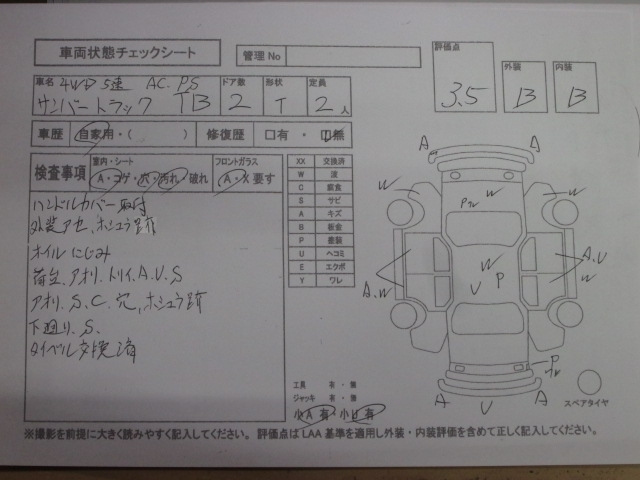 車両状態チェックシート
管理No
評価点 3.5
外装 B
内装 B
車名 4WD 5速 AC.PS
サンバートラック TB
ドア数 2
形状 T
定員 2人
車歴 自家用・( ) 修復歴 □有・□無
検査事項
室内・シート
A・コゲ・穴・汚れ・破れ
フロントガラス
A・X要す
XX 交換済
W 波
C 腐食
S サビ
A キズ
B 板金
P 塗装
U ヘコミ
E エクボ
Y ワレ
ハンドルカバー取付
外装アセ、ホシュウ跡
オイルにじみ
荷台、アオリ、トリイ.A.U.S
アオリ.S.C.穴、ホシュウ跡
下廻り.S.
タイベル交換済
工具 有・無
ジャッキ 有・無
小A有・小B有
A A
W W W
P
W
U P
A.W
A.U
W
P
A U A
スペアタイヤ
※撮影を前提に大きく読みやすく記入してください。評価点はLAA基準を適用し外装・内装評価を含めて正しく記入してください。